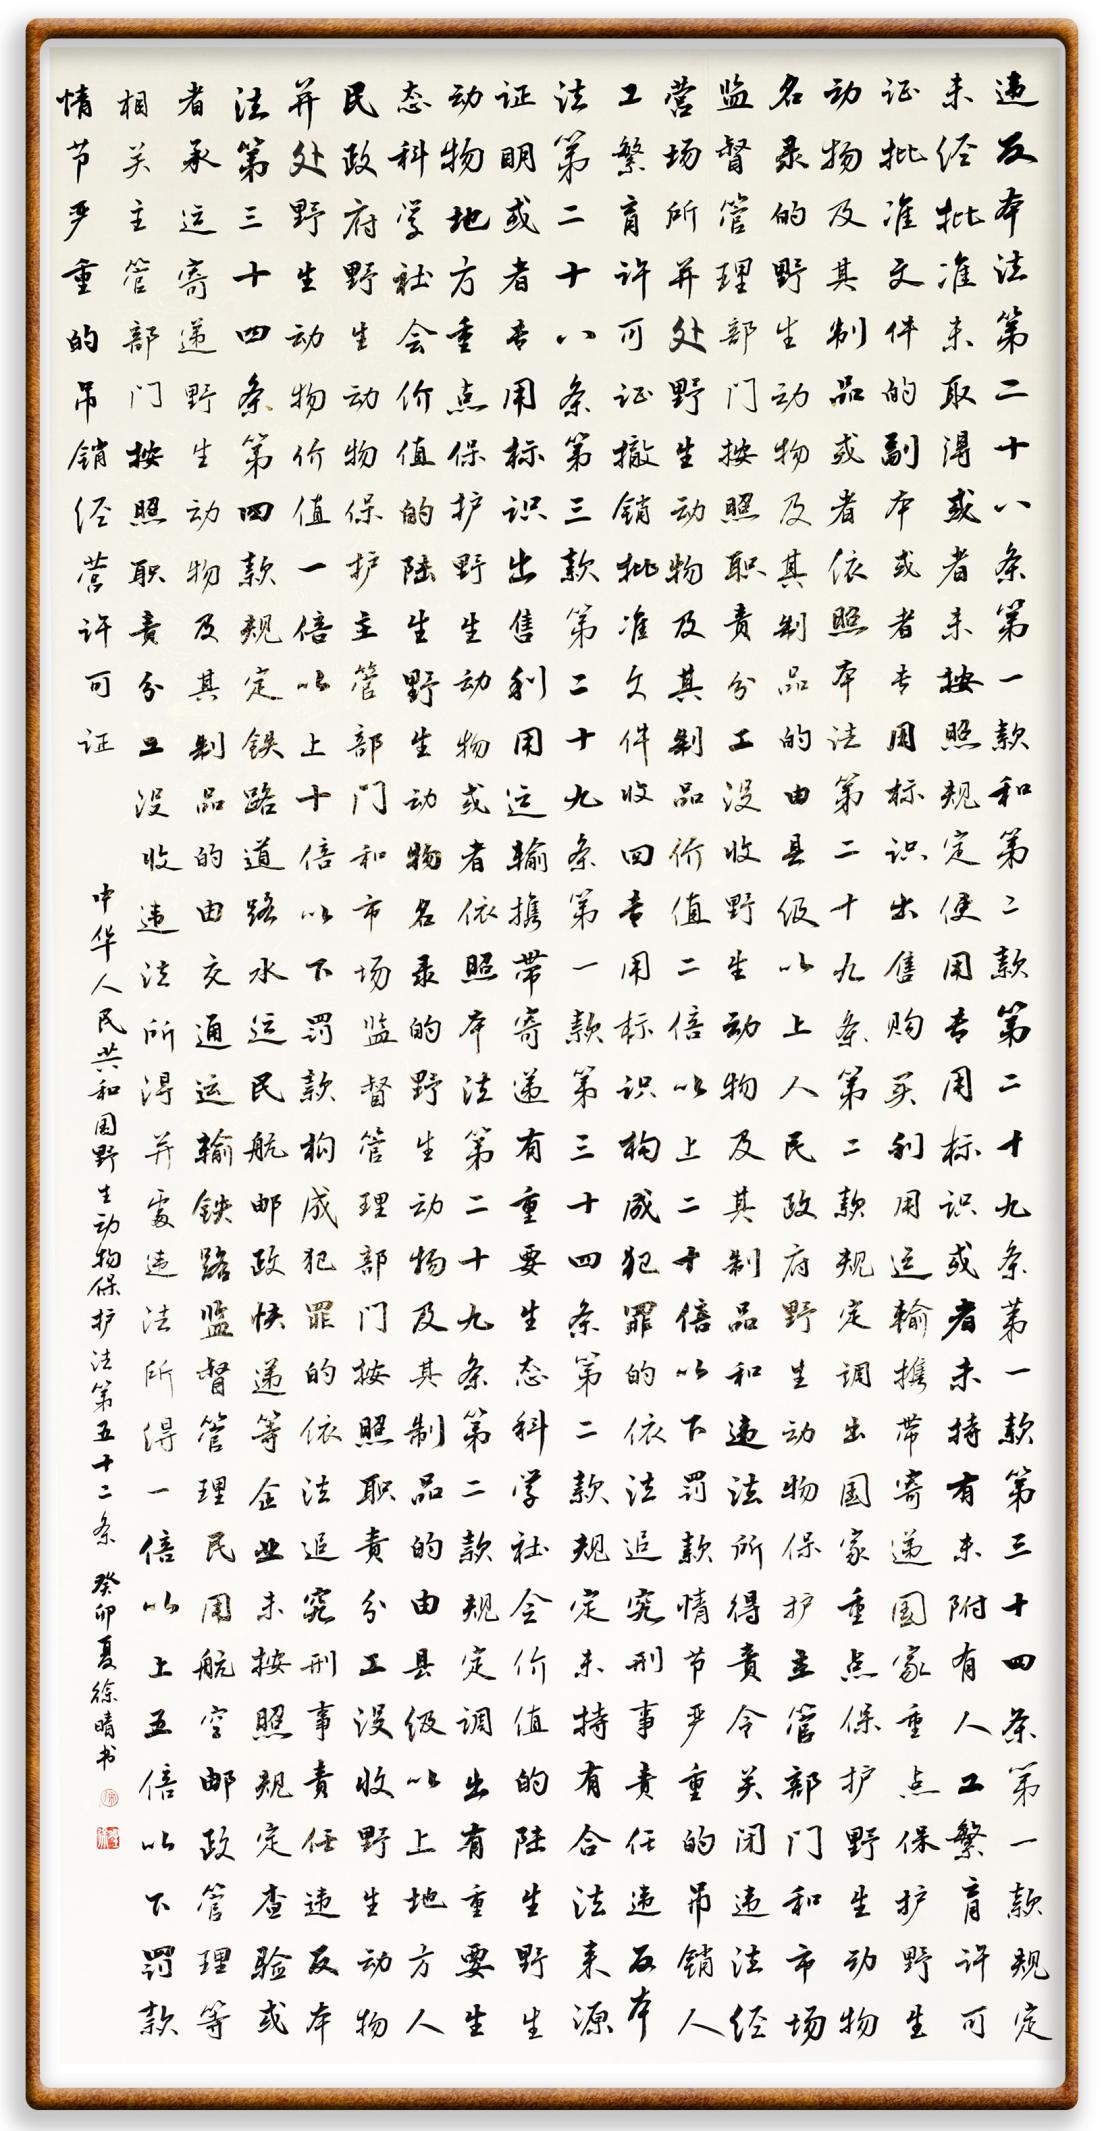 违反本法第二十八条第一款和第二款第二十九条第一款第三十四条第一款规定
未经批准未取得或者未按照规定使用专用标识或者未持有未附有人工繁育许可
证批准文件的副本或者专用标识出售购买利用运输携带寄递国家重点保护野生
动物及其制品或者依照本法第二十九条第二款规定调出国家重点保护野生动物
名录的野生动物及其制品的由县级以上人民政府野生动物保护主管部门和市场
监督管理部门按照职责分工没收野生动物及其制品和违法所得责令关闭违法经
营场所并处野生动物及其制品价值二倍以上二十倍以下罚款情节严重的吊销人
工繁育许可证撤销批准文件收回专用标识构成犯罪的依法追究刑事责任违反本
法第二十八条第三款第二十九条第一款第三十四条第二款规定未持有合法来源
证明或者专用标识出售利用运输携带寄递有重要生态科学社会价值的陆生野生
动物地方重点保护野生动物或者依照本法第二十九条第二款规定调出有重要生
态科学社会价值的陆生野生动物名录的野生动物及其制品的由县级以上地方人
民政府野生动物保护主管部门和市场监督管理部门按照职责分工没收野生动物
并处野生动物价值一倍以上十倍以下罚款构成犯罪的依法追究刑事责任违反本
法第三十四条第四款规定铁路道路水运民航邮政快递等企业未按照规定查验或
者承运寄递野生动物及其制品的由交通运输铁路监督管理民用航空邮政管理等
相关主管部门按照职责分工没收违法所得并處违法所得一倍以上五倍以下罚款
情节严重的吊销经营许可证
中华人民共和国野生动物保护法第五十二条 癸卯夏徐晴书